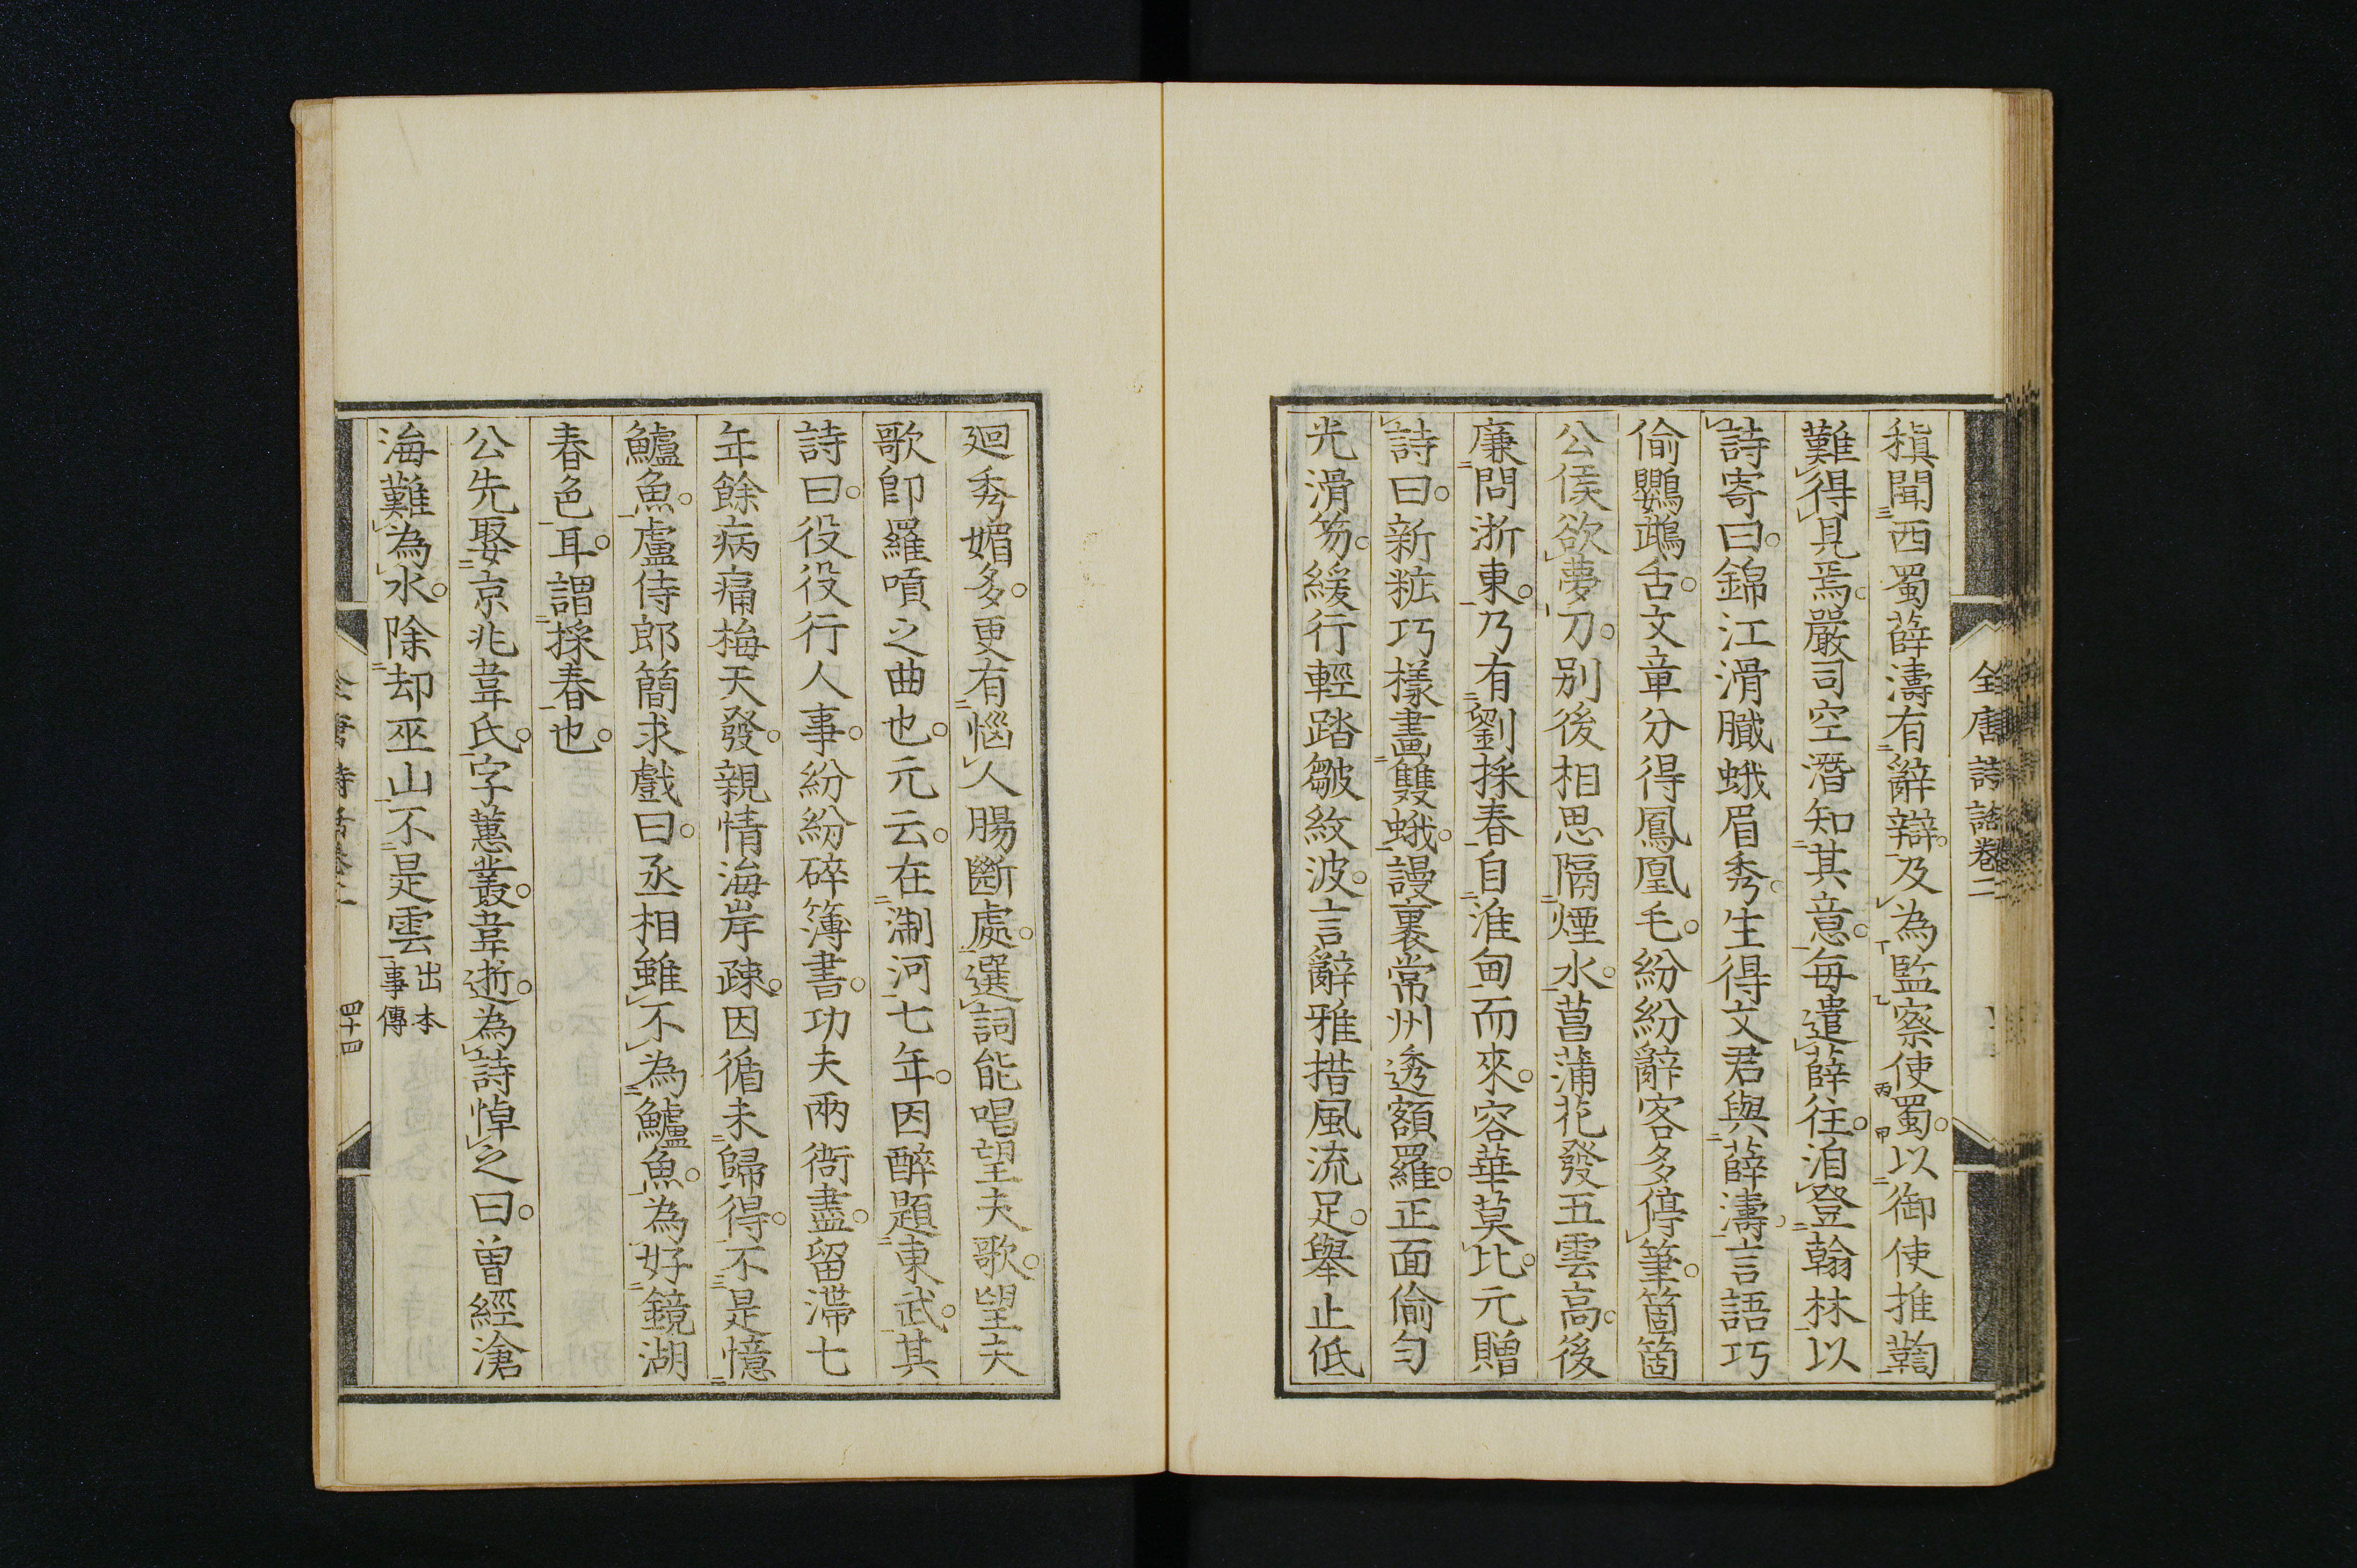 全唐詩話卷二
稹聞西蜀薛濤有辭辯及為監察使蜀以御使推鞫
難得見焉嚴司空潛知其意每遣薛往洎登翰林以
詩寄曰錦江滑膩蛾眉秀生得文君與薛濤言語巧
偷鸚鵡舌文章分得鳳凰毛紛紛辭客多停筆箇箇
公侯欲夢刀別後相思隔煙水菖蒲花發五雲高後
廉問浙東乃有劉採春自淮甸而來容華莫比元贈
詩曰新粧巧樣畫雙蛾謾裏常州透額羅正面偷勻
光滑笏緩行輕踏皺紋波言辭雅措風流足舉止低
廻秀媚多更有惱人腸斷處選詞能唱望夫歌望夫
歌即羅嗊之曲也元云在淛河七年因醉題東武其
詩曰役役行人事紛紛碎簿書功夫兩衙盡留滯七
年餘病痛梅天發親情海岸疎因循未歸得不是憶
鱸魚盧侍郎簡求戲曰丞相雖不為鱸魚為好鏡湖
春色耳謂採春也
公先娶京兆韋氏字蕙叢韋逝為詩悼之曰曾經滄
海難為水除却巫山不是雲出本事傳
四十四